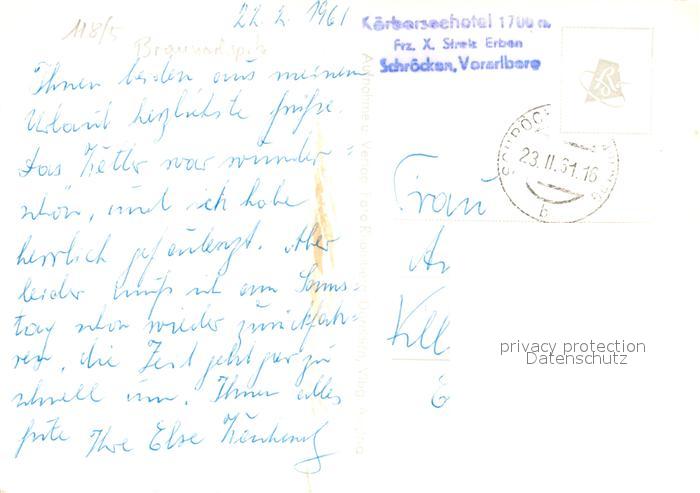 22. 2. 1961
118/5
Ihnen beiden aus meinem
Urlaub herzlichste Grüße.
Das Wetter war wunder=
schön, und ich habe
herrlich gefaulenzt. Aber
leider muß ich am Sams=
tag schon wieder zurückfah=
ren, die Zeit geht gar zu
schnell um. Ihnen alles
gute Ihre Else
Körberseehotel 1700 m
Frz. X. Strelz Erben
Schröcken, Vorarlberg
23.II.61.16
b
Frau
privacy protection
Datenschutz